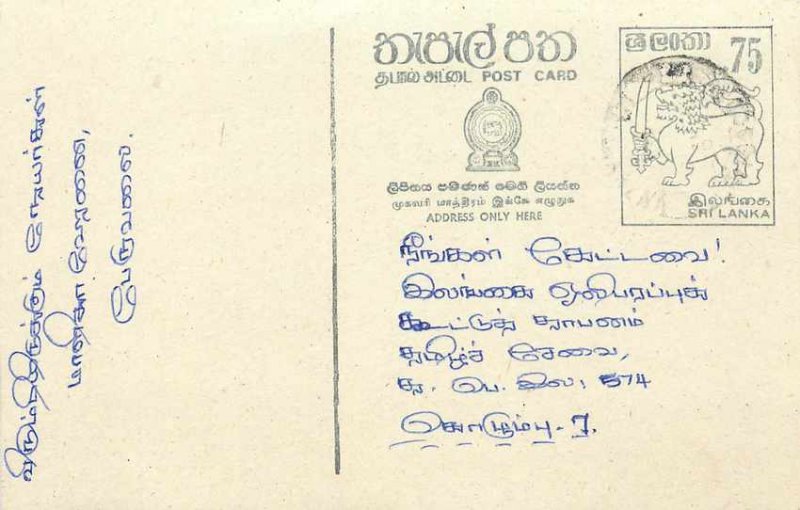 තැපැල් පත
தபால் அட்டை POST CARD
ලිපිනය පමණක් මෙහි ලියන්න
முகவரி மாத்திரம் இங்கே எழுதுக
ADDRESS ONLY HERE
ශ්‍රී ලංකා 75
இலங்கை
SRI LANKA
நீங்கள் கேட்டவை!
இலங்கை ஒலிபரப்புக்
கூட்டுத் தாபனம்
தமிழ்ச் சேவை,
த. பெ. இல: 574
கொழும்பு - 7.
விரும்பியிருக்கும் நேயர்கள்
பேருவலை.